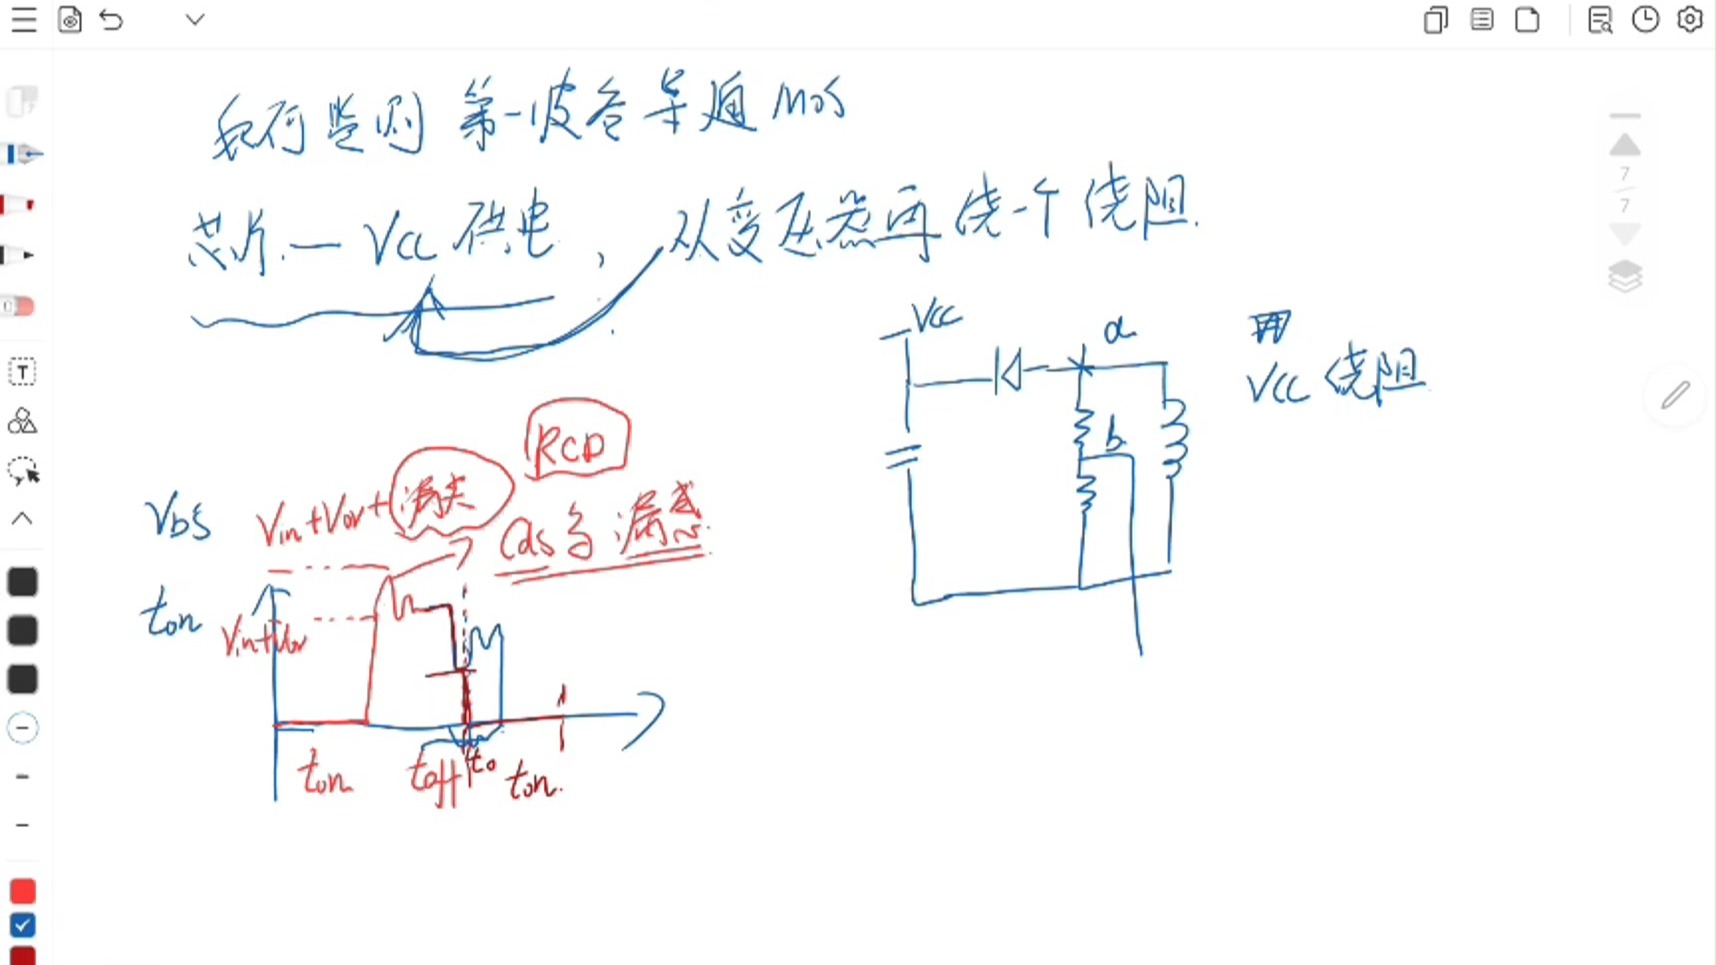 如何监测第一波谷导通MOS
芯片—VCC供电,从变压器再绕一个绕阻.
VCC
a
VCC绕阻
b
RCD
Vin+Vor+漏
Cds与漏感
ton
Vin+Vor
ton
toff
to
ton.
7
7
T